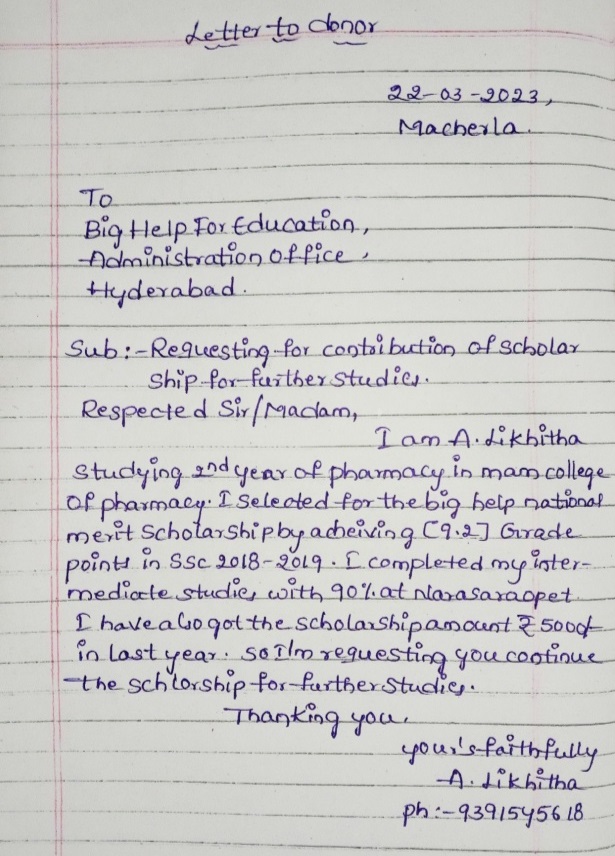 Letter to donor
22-03-2023,
Macherla.
To
Big Help For Education,
Administration office,
Hyderabad.
Sub:- Requesting for contribution of scholar
ship for further studies.
Respected Sir/Madam,
I am A. Likhitha
studying 2nd year of pharmacy in mam college
of pharmacy. I selected for the big help national
merit scholarship by acheiving [9.2] Grade
points in SSC 2018-2019. I completed my inter-
mediate studies with 90% at Narasaraopet
I have also got the scholarship amount ₹ 5000/-
in last year. So I'm requesting you continue
the schlorship for further studies.
Thanking you,
your's faithfully
A. Likhitha
ph:- 9391545618